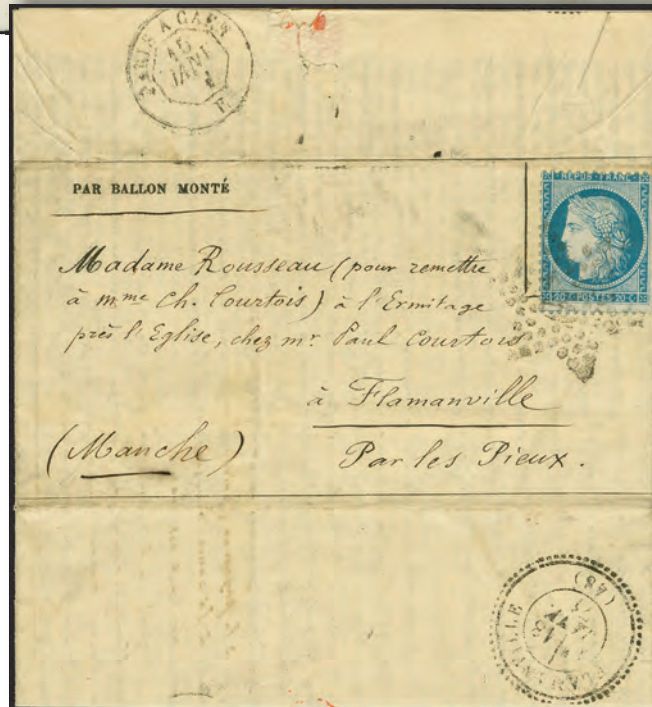 PARIS A CAEN
15
JANV
PAR BALLON MONTÉ
REPUB. FRANC.
20.C POSTES 20.C
Madame Rousseau (pour remettre
à mme Ch. Courtois) à l'Ermitage
près l'Eglise, chez mr. Paul Courtois
à Flamanville
(Manche)
Par les Pieux.
FLAMANVILLE (48)
18